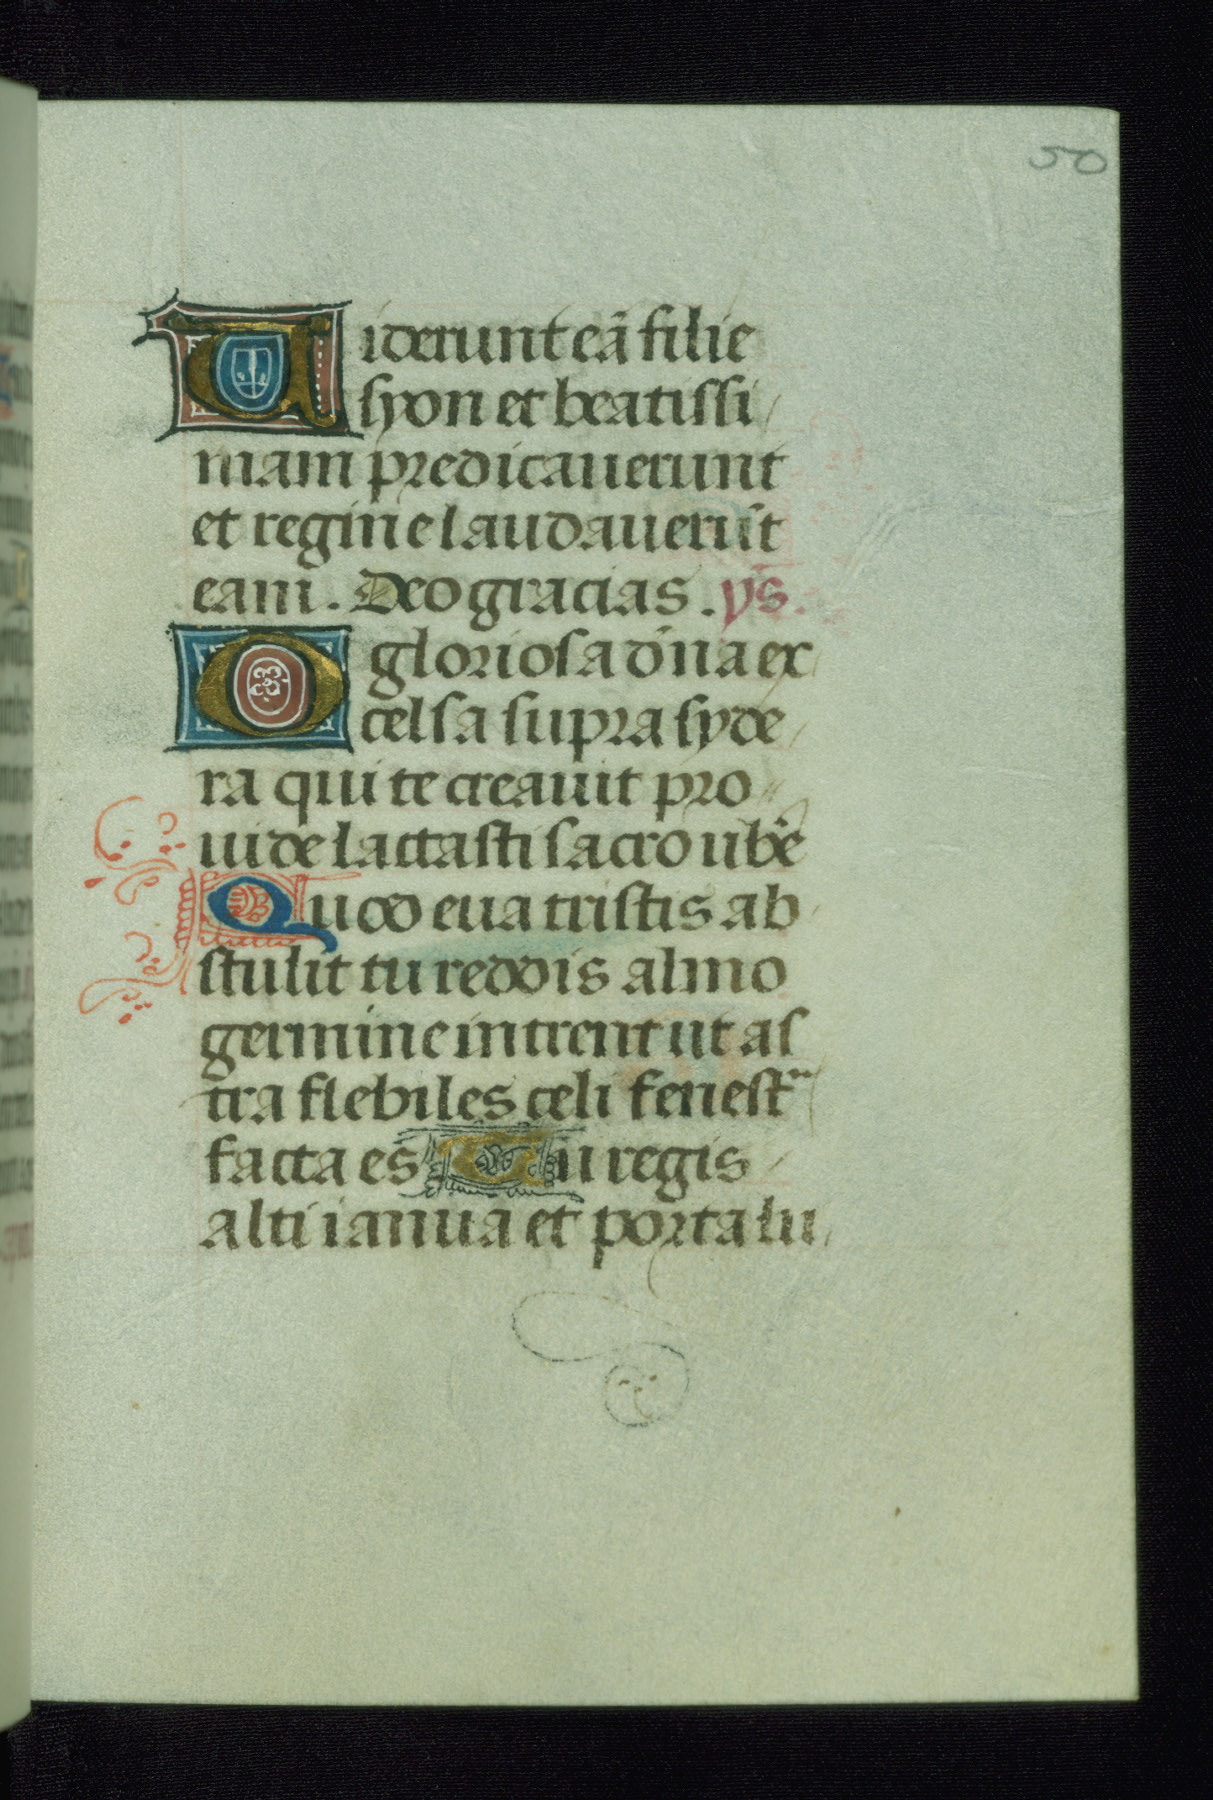 50
Uiderunt eā filie
syon et beatissi
mam predicauerunt
et regine laudauerūt
eam. Deo gracias. ys.
O gloriosa dn̄a ex
celsa supra syde
ra qui te creauit pro
uide lactasti sacro ub̄e
Quod eua tristis ab
stulit tu reddis almo
germine intrent ut as
tra flebiles celi fenestra
facta es Tu regis
alti ianua et porta lu